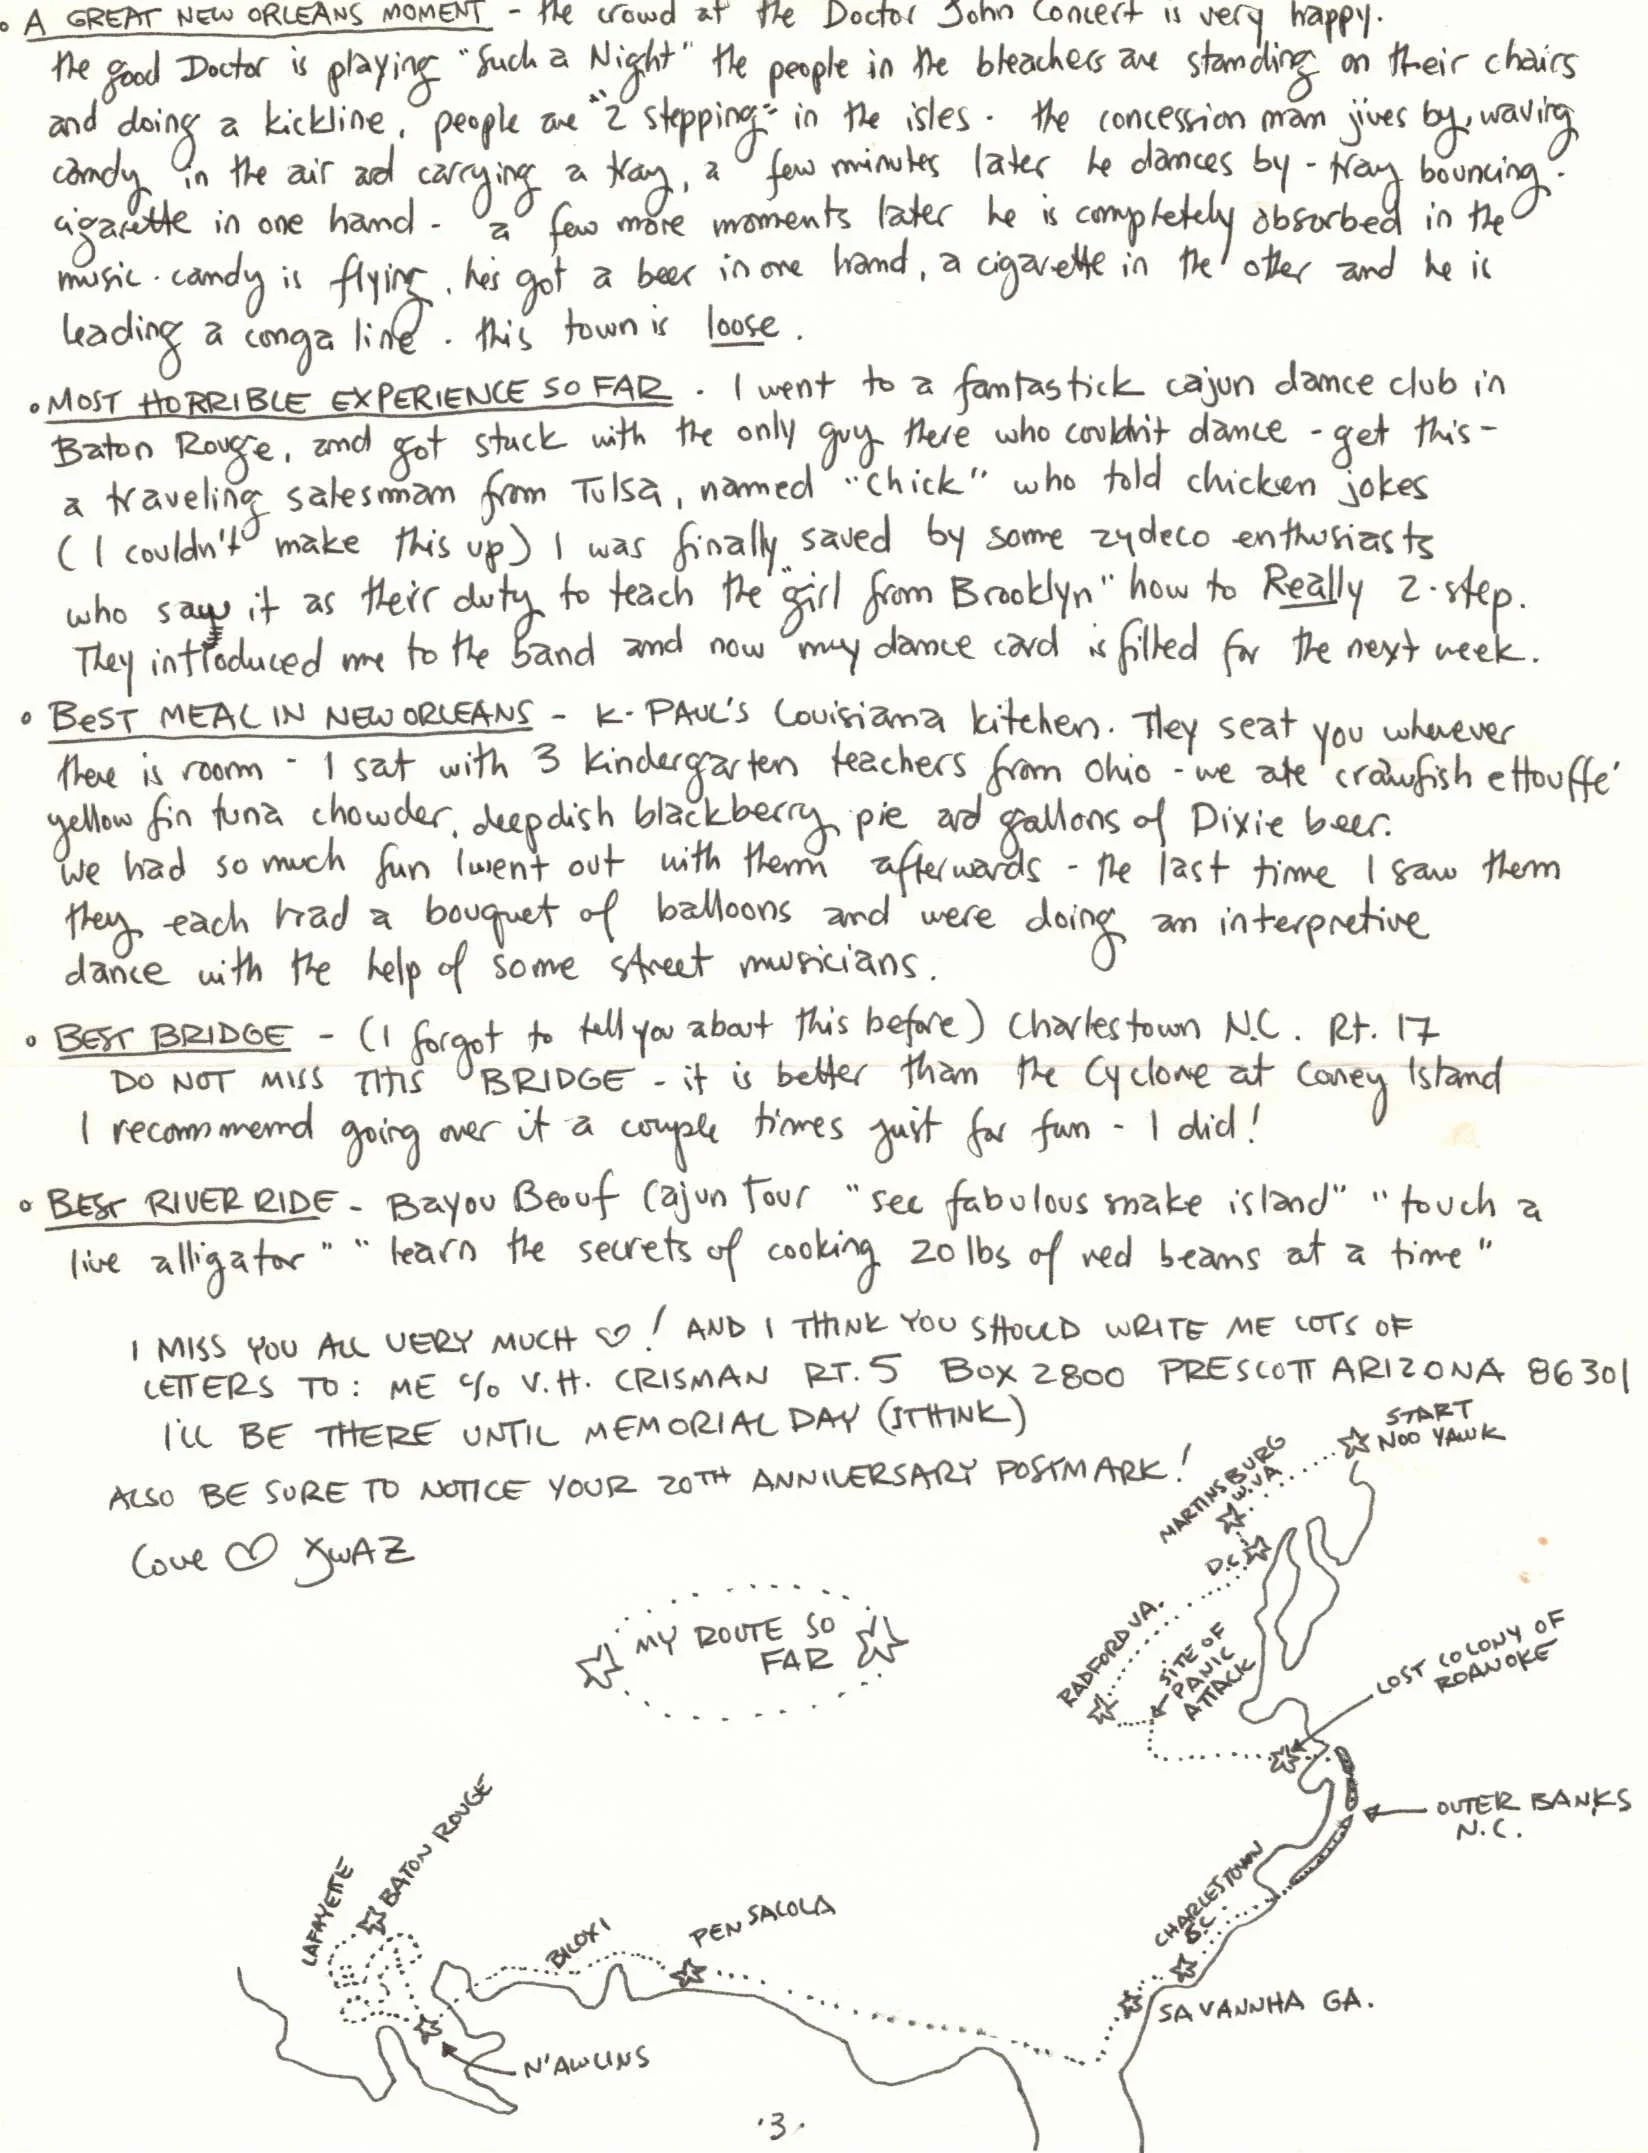 • A GREAT NEW ORLEANS MOMENT - the crowd at the Doctor John Concert is very happy.
the good Doctor is playing "Such a Night" the people in the bleachers are standing on their chairs
and doing a kickline, people are "2 stepping" in the isles. the concession man jives by, waving
candy in the air and carrying a tray, a few minutes later he dances by - tray bouncing.
cigarette in one hand - a few more moments later he is completely absorbed in the
music. candy is flying, he's got a beer in one hand, a cigarette in the other and he is
leading a conga line. this town is loose.
• MOST HORRIBLE EXPERIENCE SO FAR. I went to a fantastick cajun dance club in
Baton Rouge, and got stuck with the only guy there who couldn't dance - get this -
a traveling salesman from Tulsa, named "Chick" who told chicken jokes
(I couldn't make this up) I was finally saved by some zydeco enthusiasts
who saw it as their duty to teach the "girl from Brooklyn" how to Really 2-step.
They introduced me to the band and now my dance card is filled for the next week.
• BEST MEAL IN NEW ORLEANS - K-PAUL'S Louisiana kitchen. They seat you wherever
there is room - I sat with 3 kindergarten teachers from Ohio - we ate crawfish ettouffé
yellow fin tuna chowder, deepdish blackberry pie and gallons of Dixie beer.
We had so much fun I went out with them afterwards - the last time I saw them
they each had a bouquet of balloons and were doing an interpretive
dance with the help of some street musicians.
• BEST BRIDGE - (I forgot to tell you about this before) Charlestown N.C. Rt. 17
DO NOT MISS THIS BRIDGE - it is better than the Cyclone at Coney Island
I recommend going over it a couple times just for fun - I did!
• BEST RIVER RIDE - Bayou Beouf Cajun Tour "see fabulous snake island" "touch a
live alligator" "learn the secrets of cooking 20 lbs of red beans at a time"
I MISS YOU ALL VERY MUCH ♡! AND I THINK YOU SHOULD WRITE ME LOTS OF
LETTERS TO: ME c/o V.H. CRISMAN RT. 5 BOX 2800 PRESCOTT ARIZONA 86301
I'LL BE THERE UNTIL MEMORIAL DAY (I THINK)
ALSO BE SURE TO NOTICE YOUR 20TH ANNIVERSARY POSTMARK!
Love ♡ SWAZ
START
NOO YAWK
MARTINSBURG
W.VA
D.C.
RADFORD VA.
SITE OF
PANIC
ATTACK
MY ROUTE SO
FAR
LOST COLONY OF
ROANOKE
OUTER BANKS
N.C.
CHARLESTOWN
S.C.
SAVANNHA GA.
PENSACOLA
BILOXI
BATON ROUGE
LAFAYETTE
N'AWLINS
·3·